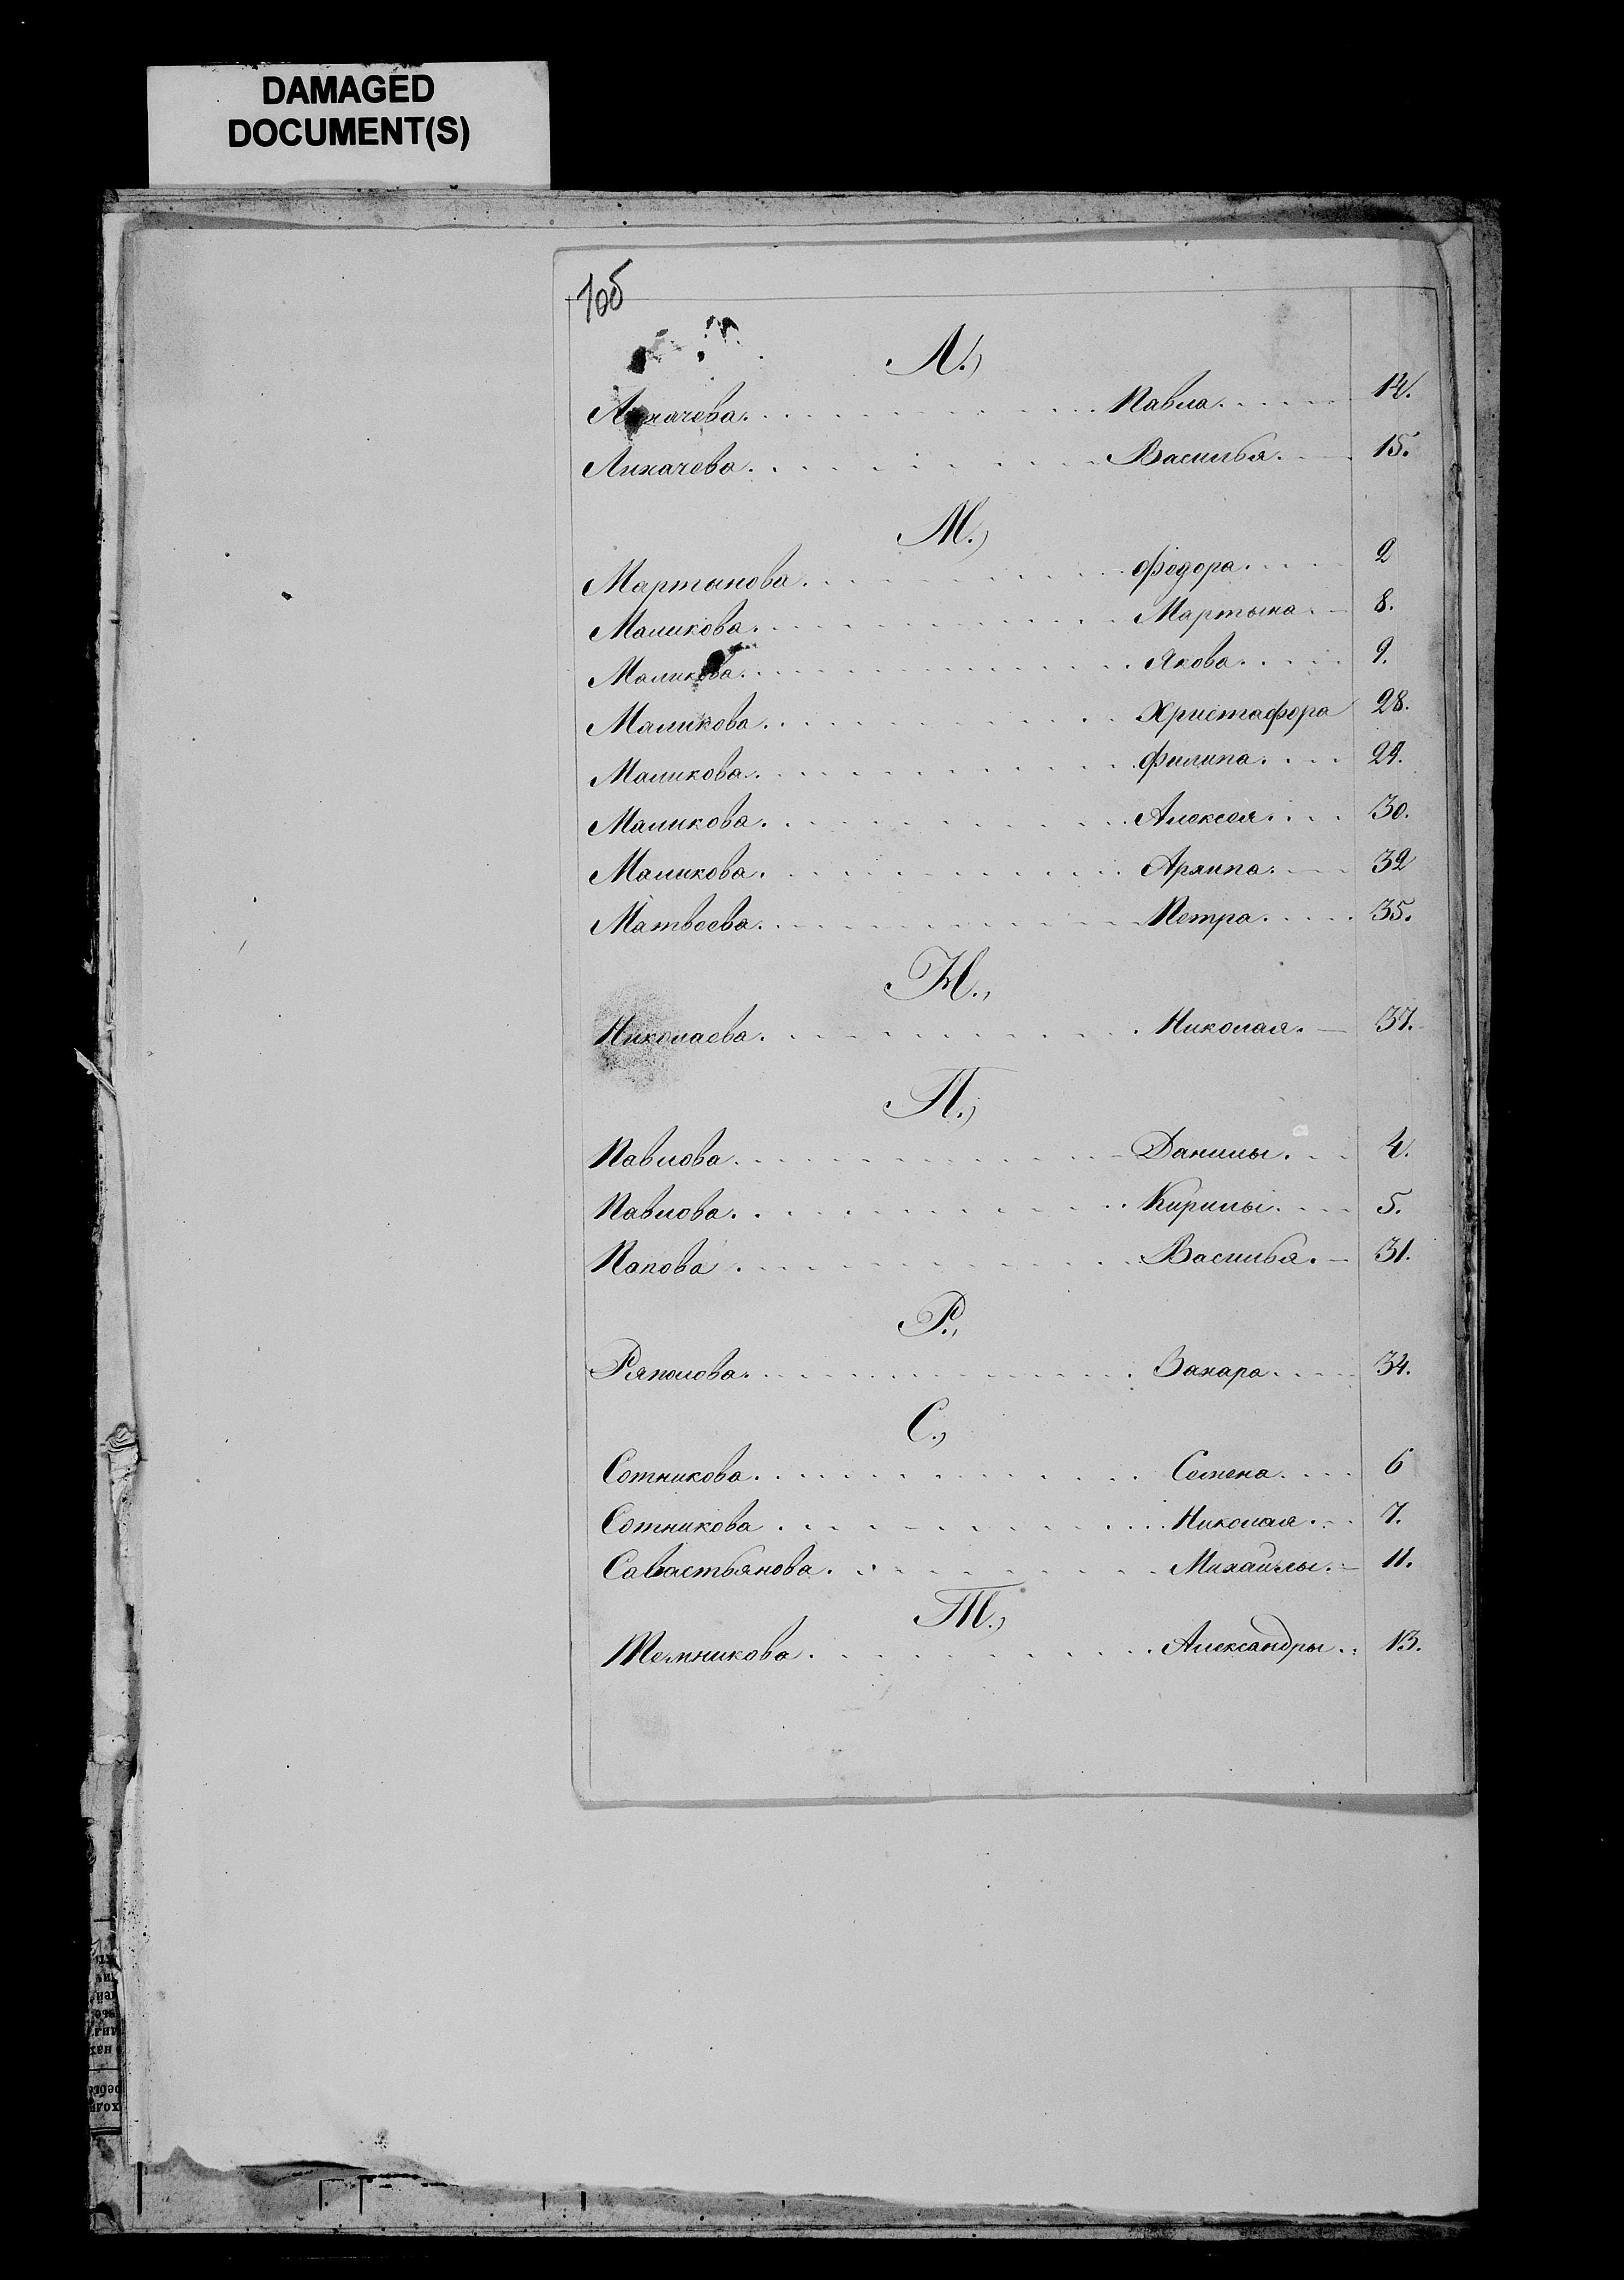 DAMAGED
DOCUMENT(S)
1об
Л.)
Лихачева. Павла. 14.
Лихачева. Василья. 15.
М.)
Мартынова. Федора. 2
Маликова. Мартына. 8.
Маликова. Якова. 9.
Маликова. Христафора 28.
Маликова. Филипа. 29.
Маликова. Алексея. 30.
Маликова. Архипа. 32
Матвеева. Петра. 35.
Н.,
Николаева. Николая. 37.
П.,
Павлова. Данилы. 4.
Павлова. Кирилы. 5.
Попова. Василья. 31.
Р.,
Ряполова. Захара. 34.
С.,
Сотникова. Семена. 6
Сотникова. Николая. 7.
Савастьянова. Михайлы. 11.
Т.,
Темникова. Александры. 13.